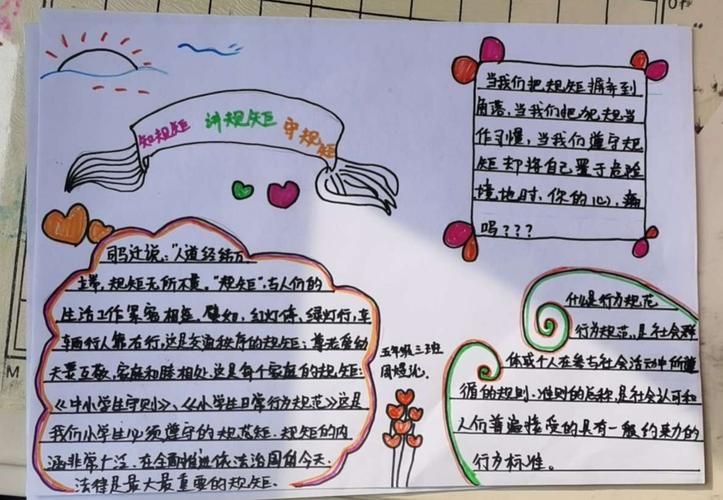 知规矩 讲规矩 守规矩
当我们把规矩摒弃到
角落,当我们把犯规当
作习惯,当我们遵守规
矩却将自己置于危险
境地时,你的心,痛
吗???
司马迁说:"人道经纬万
端,规矩无所不贯。"规矩"与人们的
生活工作紧密相连。譬如,红灯停,绿灯行,车
辆行人靠右行,这是交通秩序的规矩;尊老爱幼
夫妻互敬,家庭和睦相处,这是每个家庭的规矩;
《中小学生守则》、《小学生日常行为规范》这是
我们小学生必须遵守的规范矩。规矩的内
涵非常广泛,在全面推进依法治国的今天,
法律是最大最重要的规矩。
五年级三班
周煜
什么是行为规范
行为规范,是社会群
体或个人在参与社会活动中所遵
循的规则、准则的总称,是社会认可和
人们普遍接受的具有一般约束力的
行为标准。